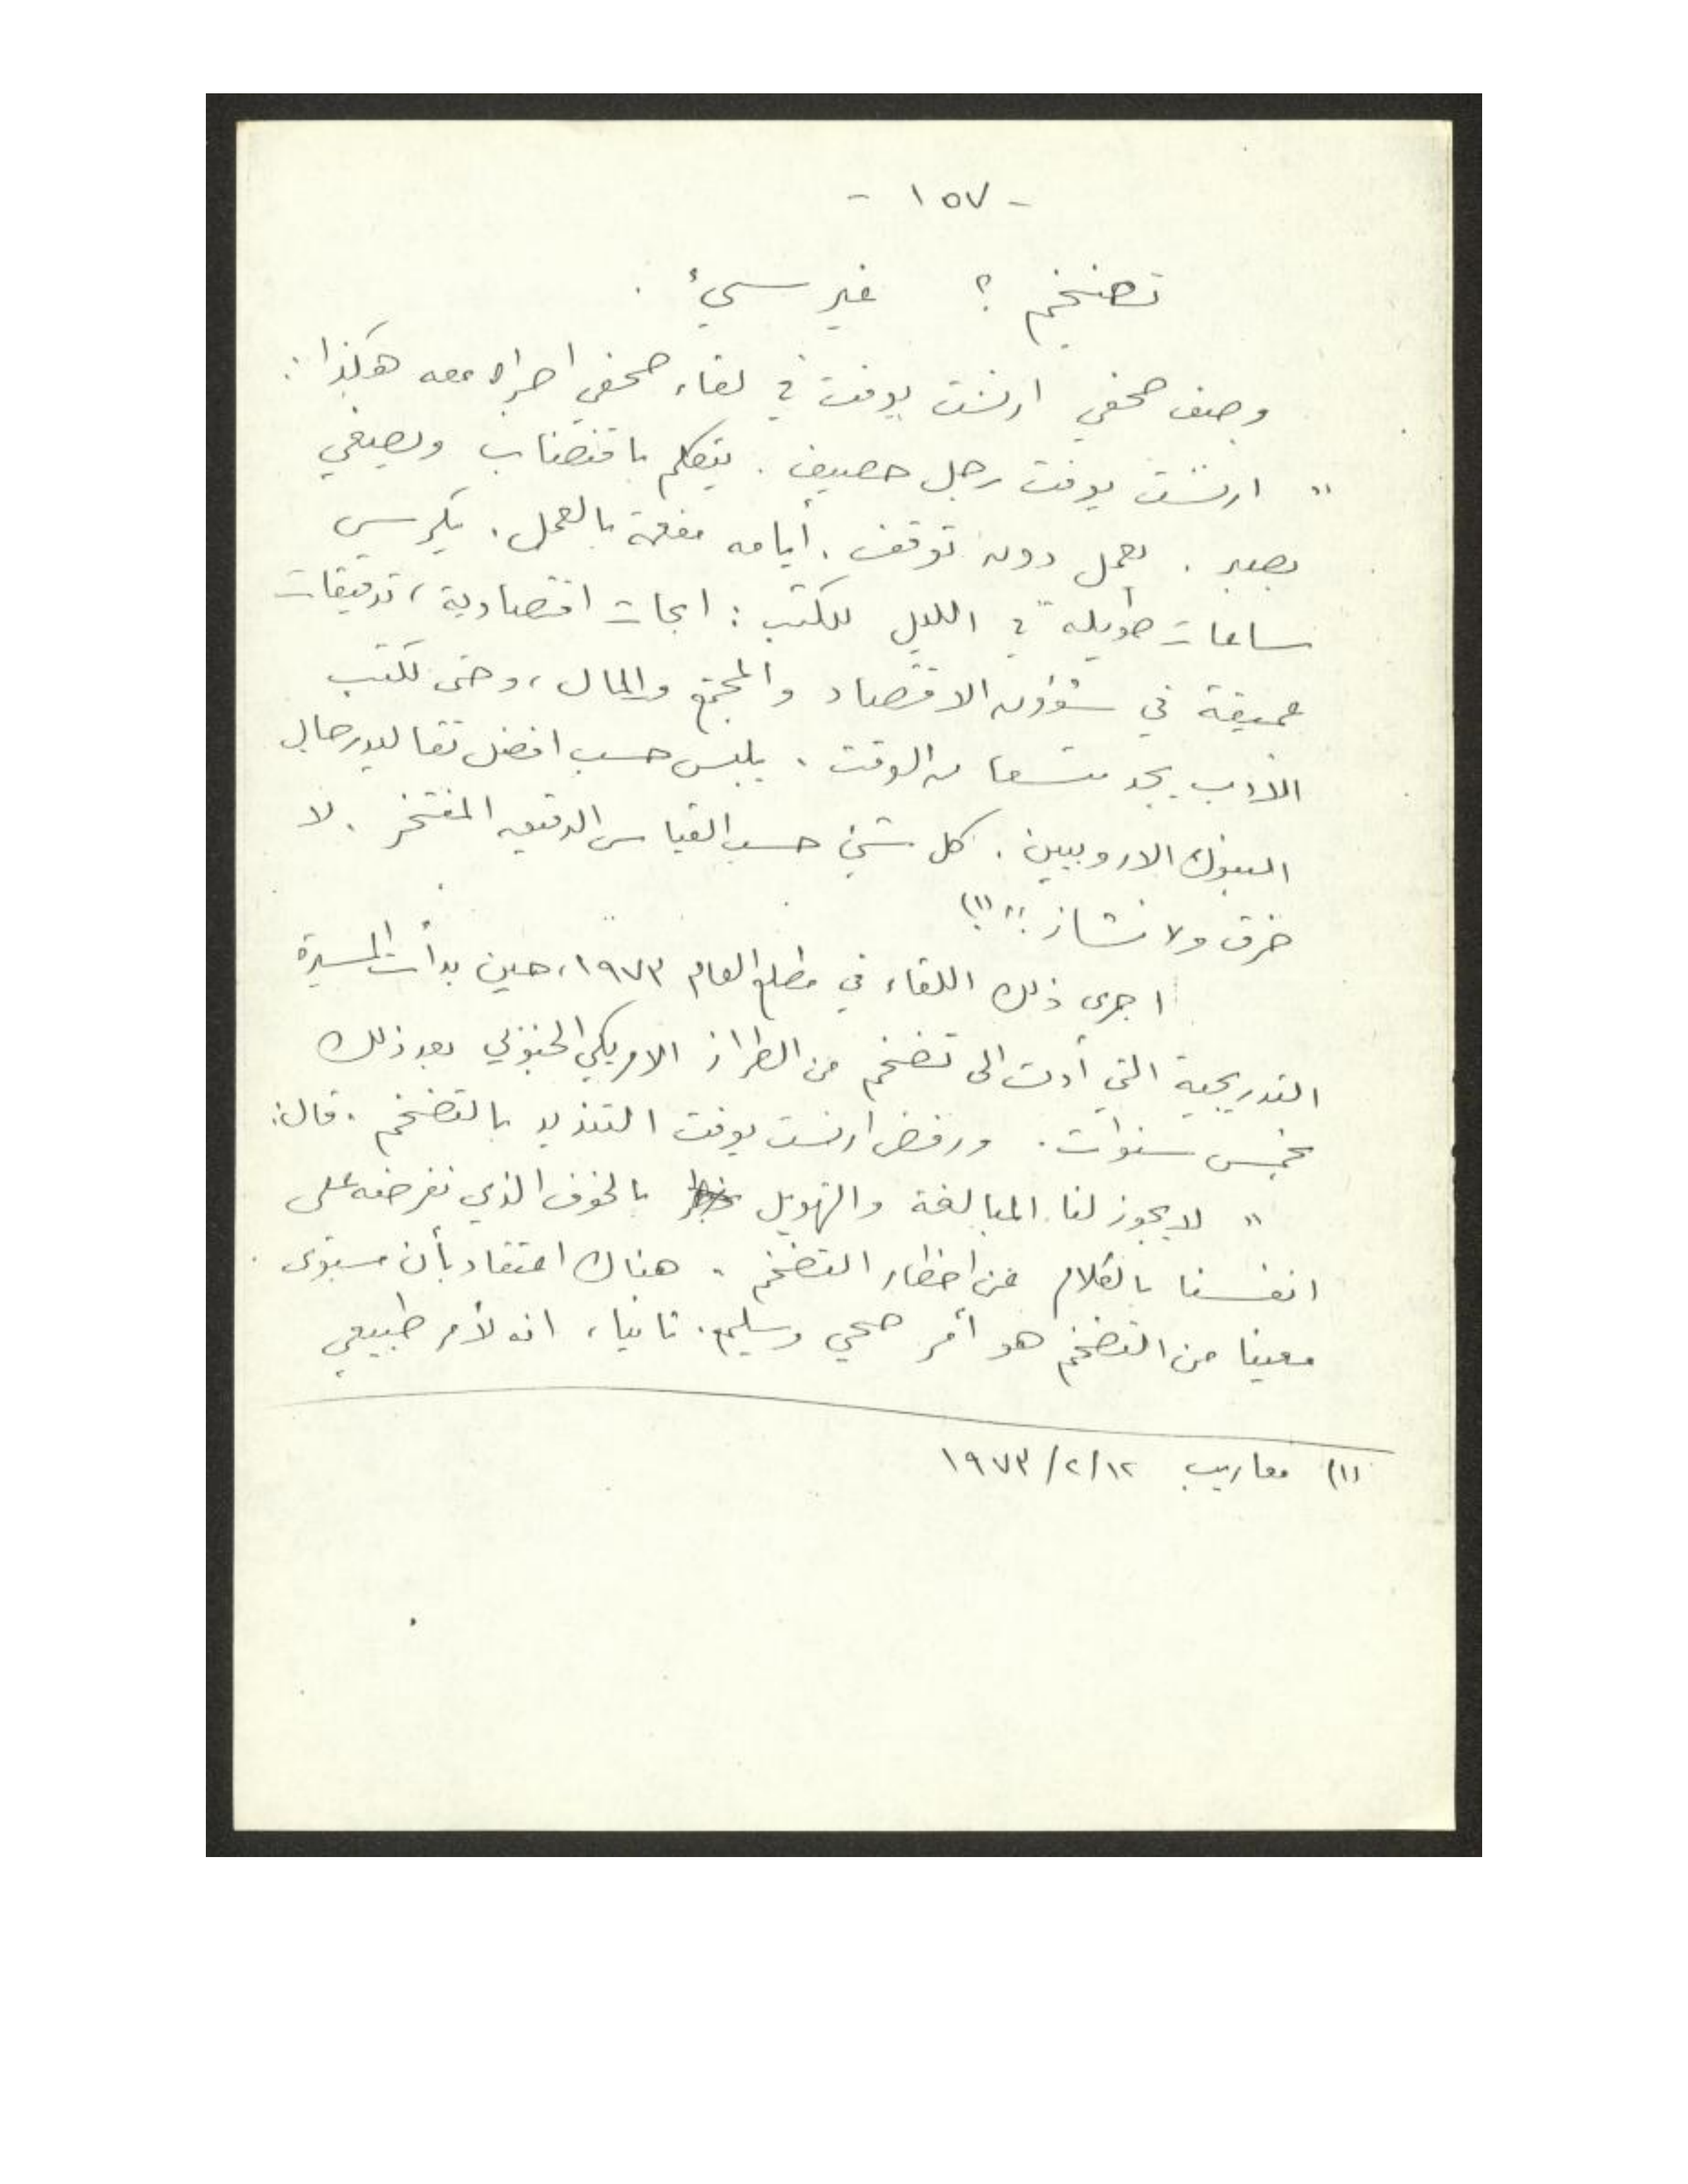 - ١٥٧ -
تضخم ؟ غير سيئ .
وصف صحفي ارنست يوفت في لقاء صحفي اجراه معه هكذا :
" ارنست يوفت رجل حصيف . يتكلم باقتضاب ويصغي
بصبر . يعمل دون توقف . أيامه مفعمة بالعمل . يكرس
ساعات طويلة في الليل للكتب : ابحاث اقتصادية ، تدقيقات
عميقة في شؤون الاقتصاد والمجتمع والمال ، وحتى لكتب
الأدب يجد متسعا من الوقت . يلبس حسب افضل تقاليد رجال
البنوك الاروبيين . كل شيئ حسب القياس الدقيق المفتخر . لا
خرق ولا نشاز !" (١)
اجري ذلك اللقاء في مطلع العام ١٩٧٣ ، حين بدأت المسيرة
التدريجية التي أدت الى تضخم من الطراز الامريكي الجنوبي بعد ذلك
بخمس سنوات . ورفض ارنست يوفت التنديد بالتضخم . قال :
" لا يجوز لنا المبالغة والتهويل بالخوف الذي نفرضه على
انفسنا بالكلام عن اخطار التضخم . هناك اعتقاد بأن مستوى
معينا من التضخم هو أمر صحي وسليم . ثانيا ، انه لأمر طبيعي
(١) معاريب ١٢/٢/١٩٧٣